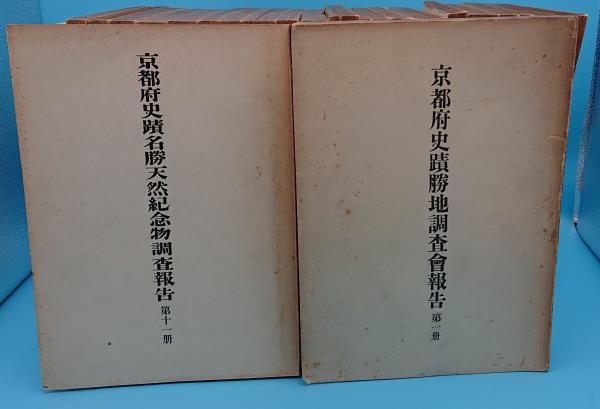 京都府史蹟勝地調査會報告 第一册
京都府史蹟名勝天然紀念物調査報告 第十一册